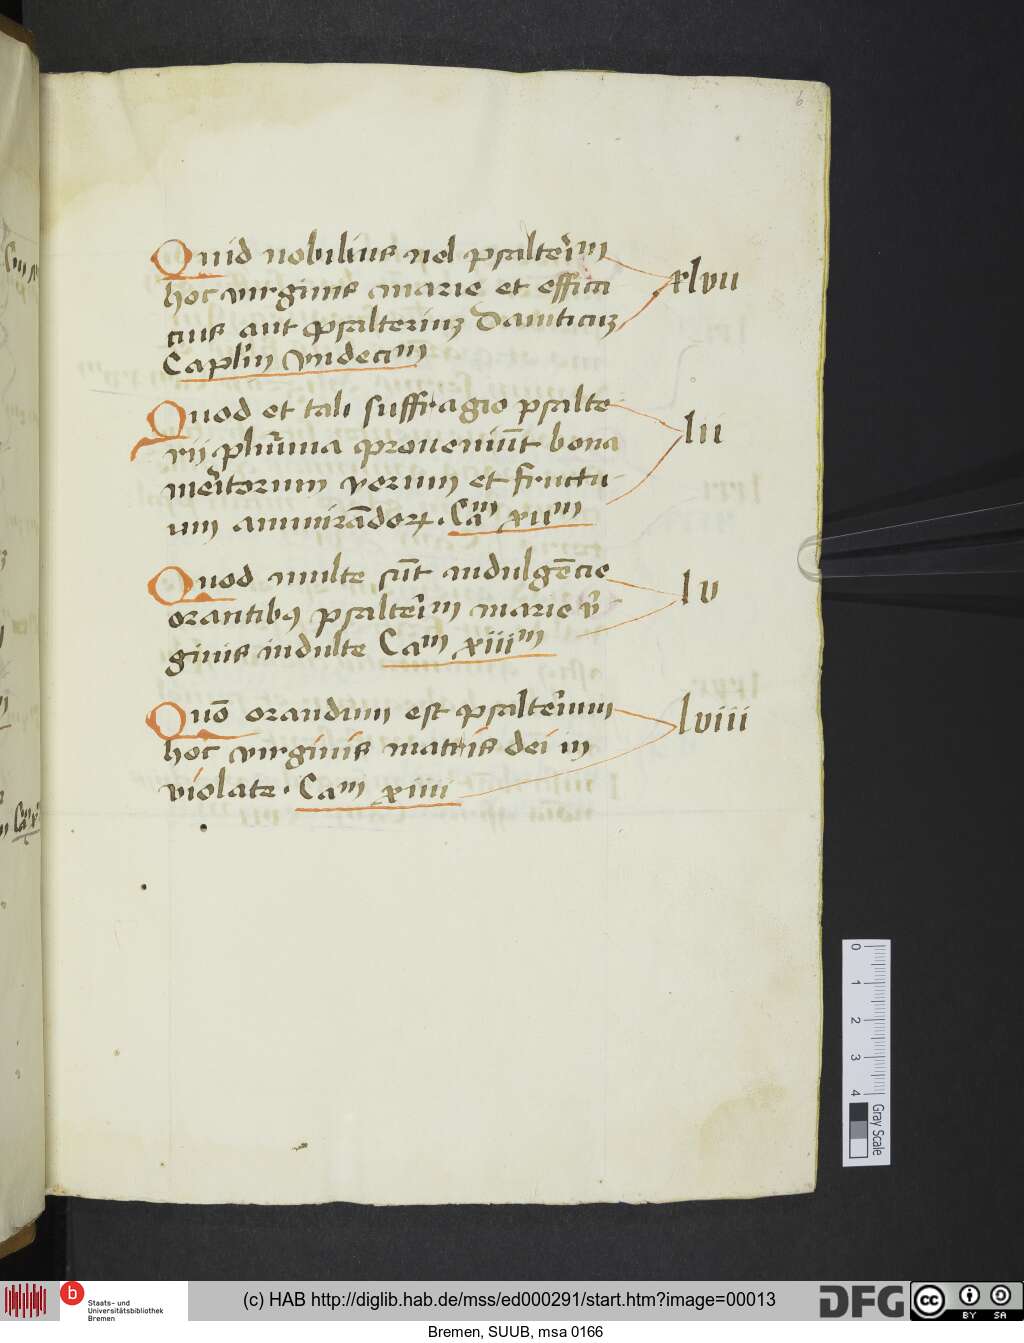 6
Quid nobilius uel psalteriu(m)
hoc virginis marie et effica
cius aut psalterium Dauiticum
Capl'm vndecim(m) xlvii
Quod et tali suffragio psalte
rij plurima proueniunt bona
meritorum verum et fructu
um ammirandorum. Ca(m) xii(m) lii
Quod multe sunt indulgencie
orantibus psalterium marie vir
ginis indulte Ca(m) xiii(m) lv
Quo orandum est psalterium
hoc virginis matris dei in
violate. Cam xiiii lviii
0 1 2 3 4 Gray Scale
b Staats- und
Universitätsbibliothek
Bremen
(c) HAB http://diglib.hab.de/mss/ed000291/start.htm?image=00013
DFG cc BY SA
Bremen, SUUB, msa 0166